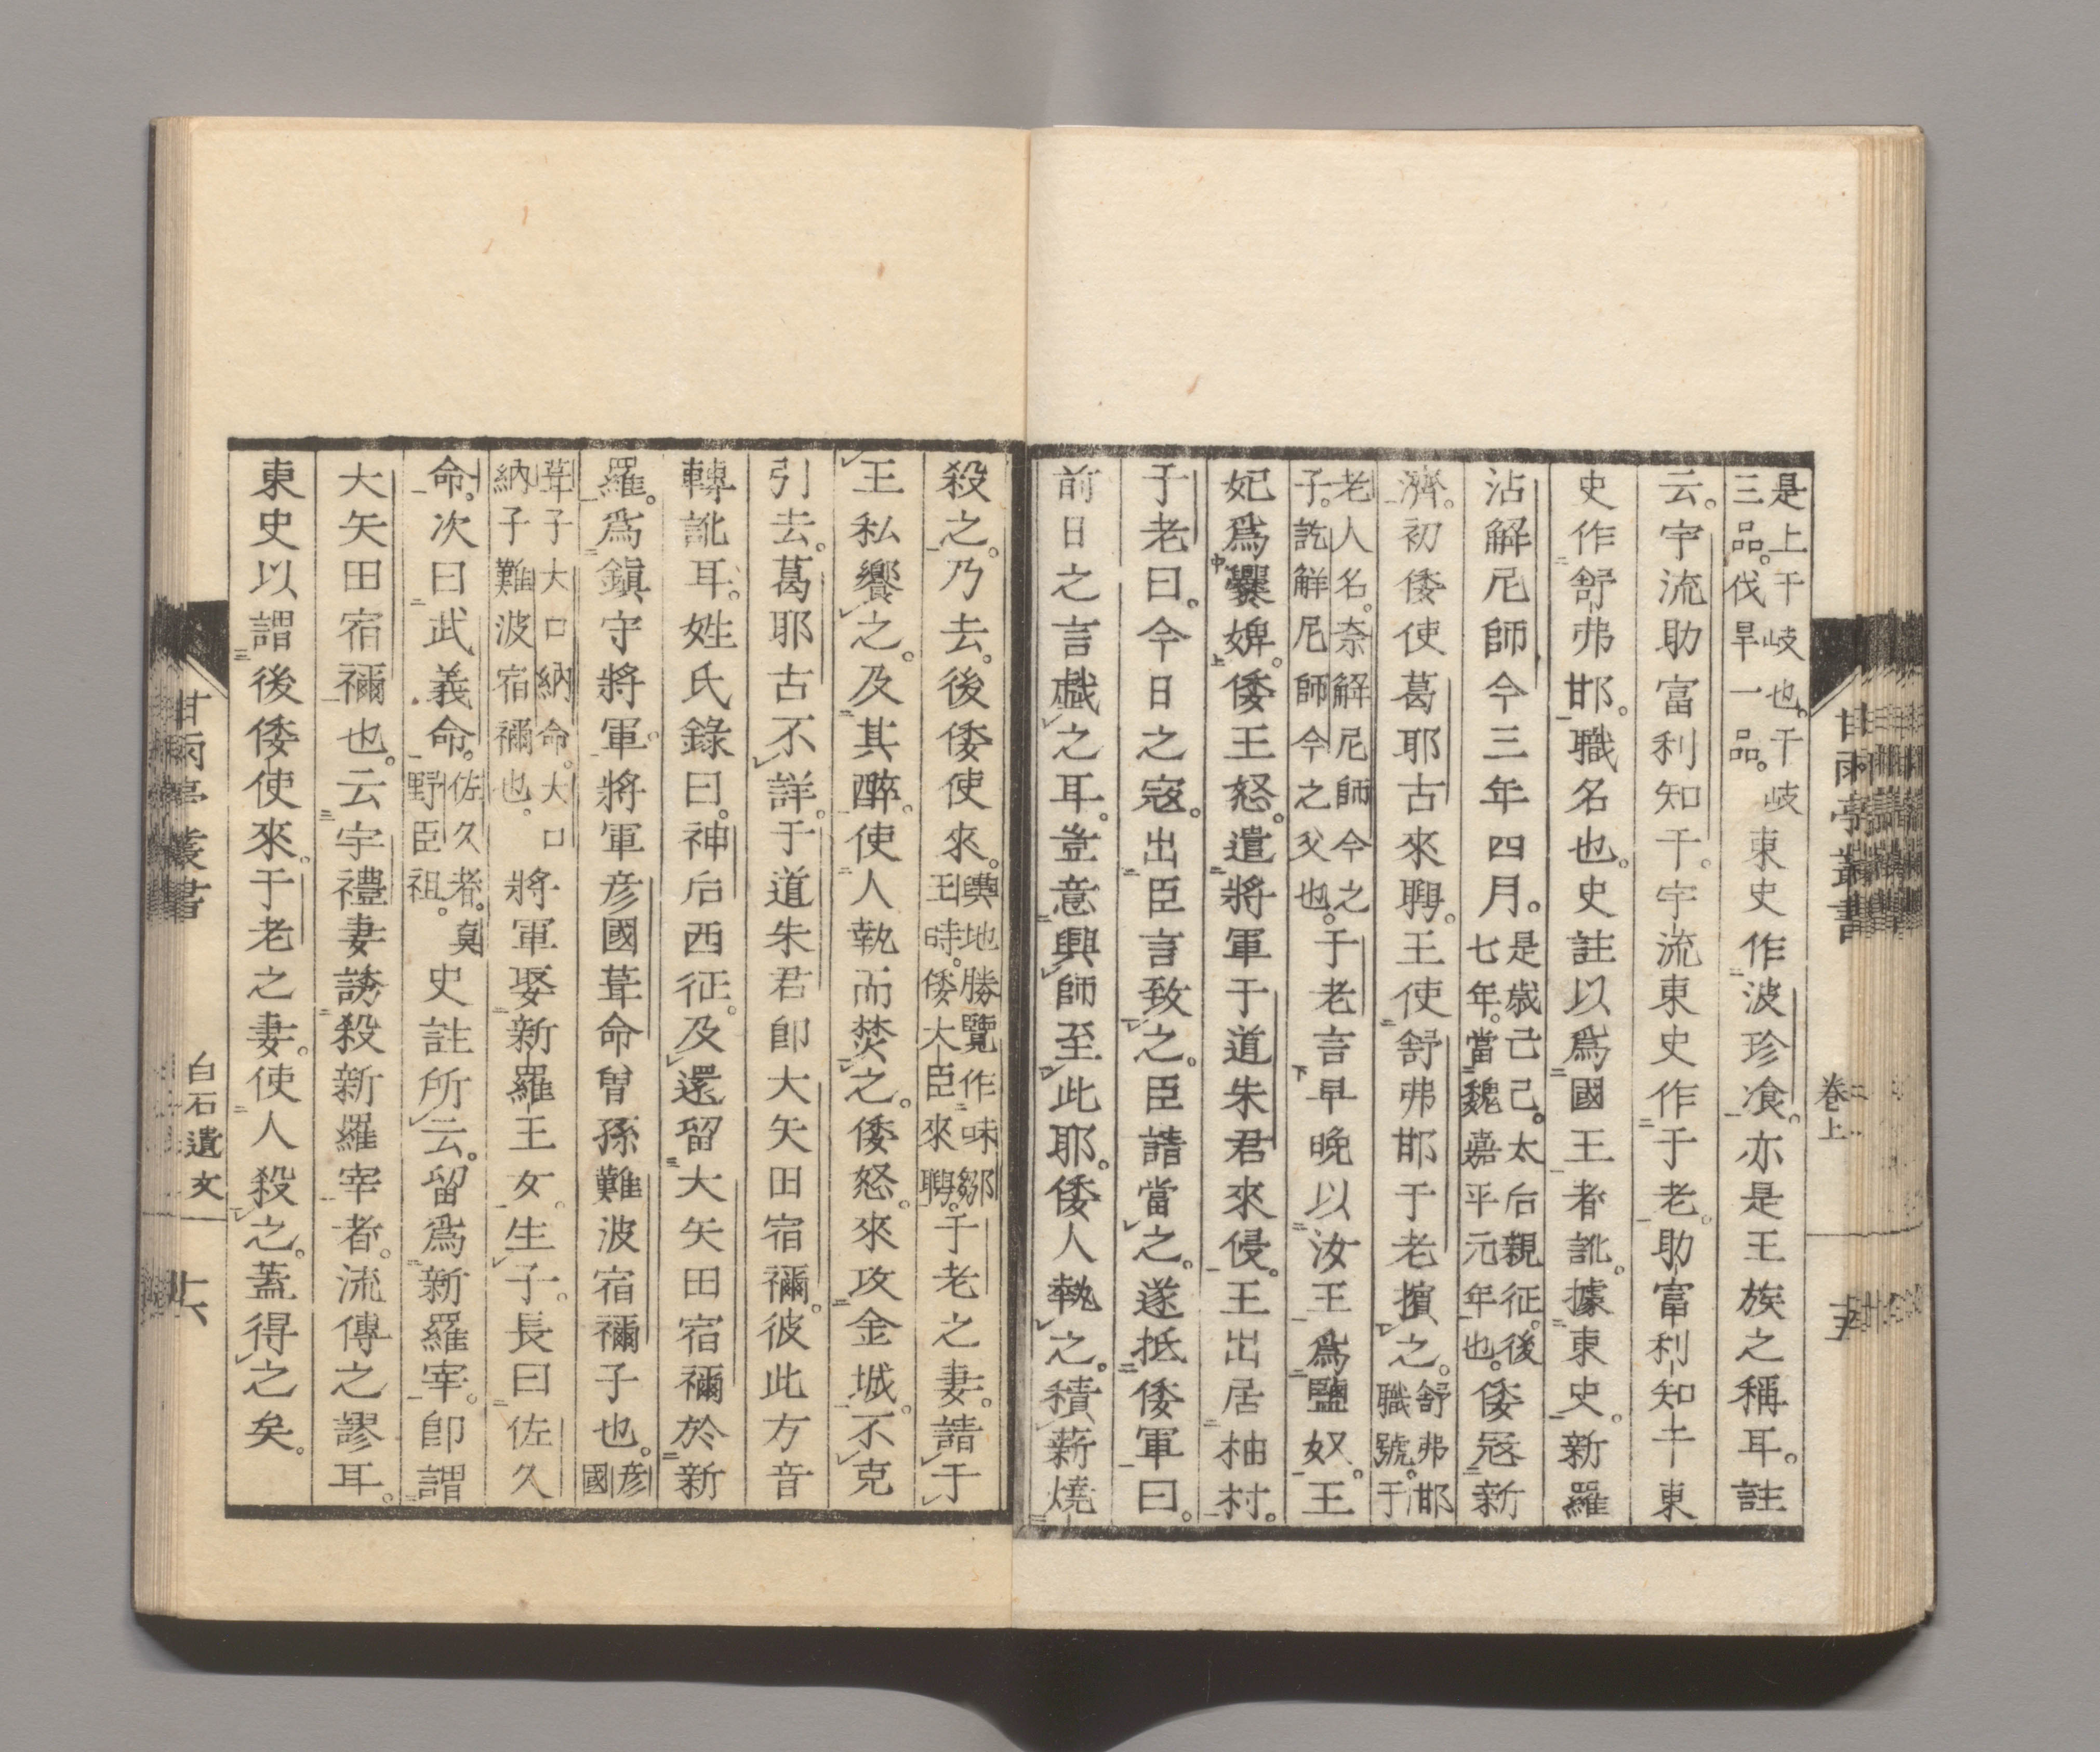 是上干岐也。干岐三品。伐旱一品。東史作波珍飡。亦是王族之稱耳。註
云。宇流助富利知干。宇流東史作于老。助富利知干東
史作舒弗邯。職名也。史註以爲國王者訛。據東史。新羅
沾解尼師今三年四月。是歳己巳。太后親征。後七年。當魏嘉平元年也。倭寇新
濟。初倭使葛耶古來聘。王使舒弗邯于老擯之。舒弗邯職號。于
老人名。奈解尼師今之子。訖解尼師今之父也。于老言早晩以汝王爲鹽奴。王
妃爲爨婢。倭王怒。遣將軍于道朱君來侵。王出居柚村。
于老曰。今日之寇。出臣言致之。臣請當之。遂抵倭軍曰。
前日之言戲之耳。豈意興師至此耶。倭人執之。積薪燒
殺之。乃去。後倭使來。輿地勝覽作味鄒王時。倭大臣來聘。于老之妻。請于
王私饗之。及其醉。使人執而焚之。倭怒。來攻金城。不克
引去。葛耶古不詳。于道朱君卽大矢田宿禰。彼此方音
轉訛耳。姓氏錄曰。神后西征。及還留大矢田宿禰於新
羅。爲鎭守將軍。將軍彦國葺命曾孫難波宿禰子也。彦國
葺子大口納命。大口納子難波宿禰也。將軍娶新羅王女。生子。長曰佐久
命。次曰武義命。佐久者。眞野臣祖。史註所云。留爲新羅宰。卽謂
大矢田宿禰也。云宇禮妻誘殺新羅宰者。流傳之謬耳。
東史以謂後倭使來。于老之妻。使人殺之。蓋得之矣。
甘雨亭叢書
卷上
十五
甘雨亭叢書
白石遺文
十六